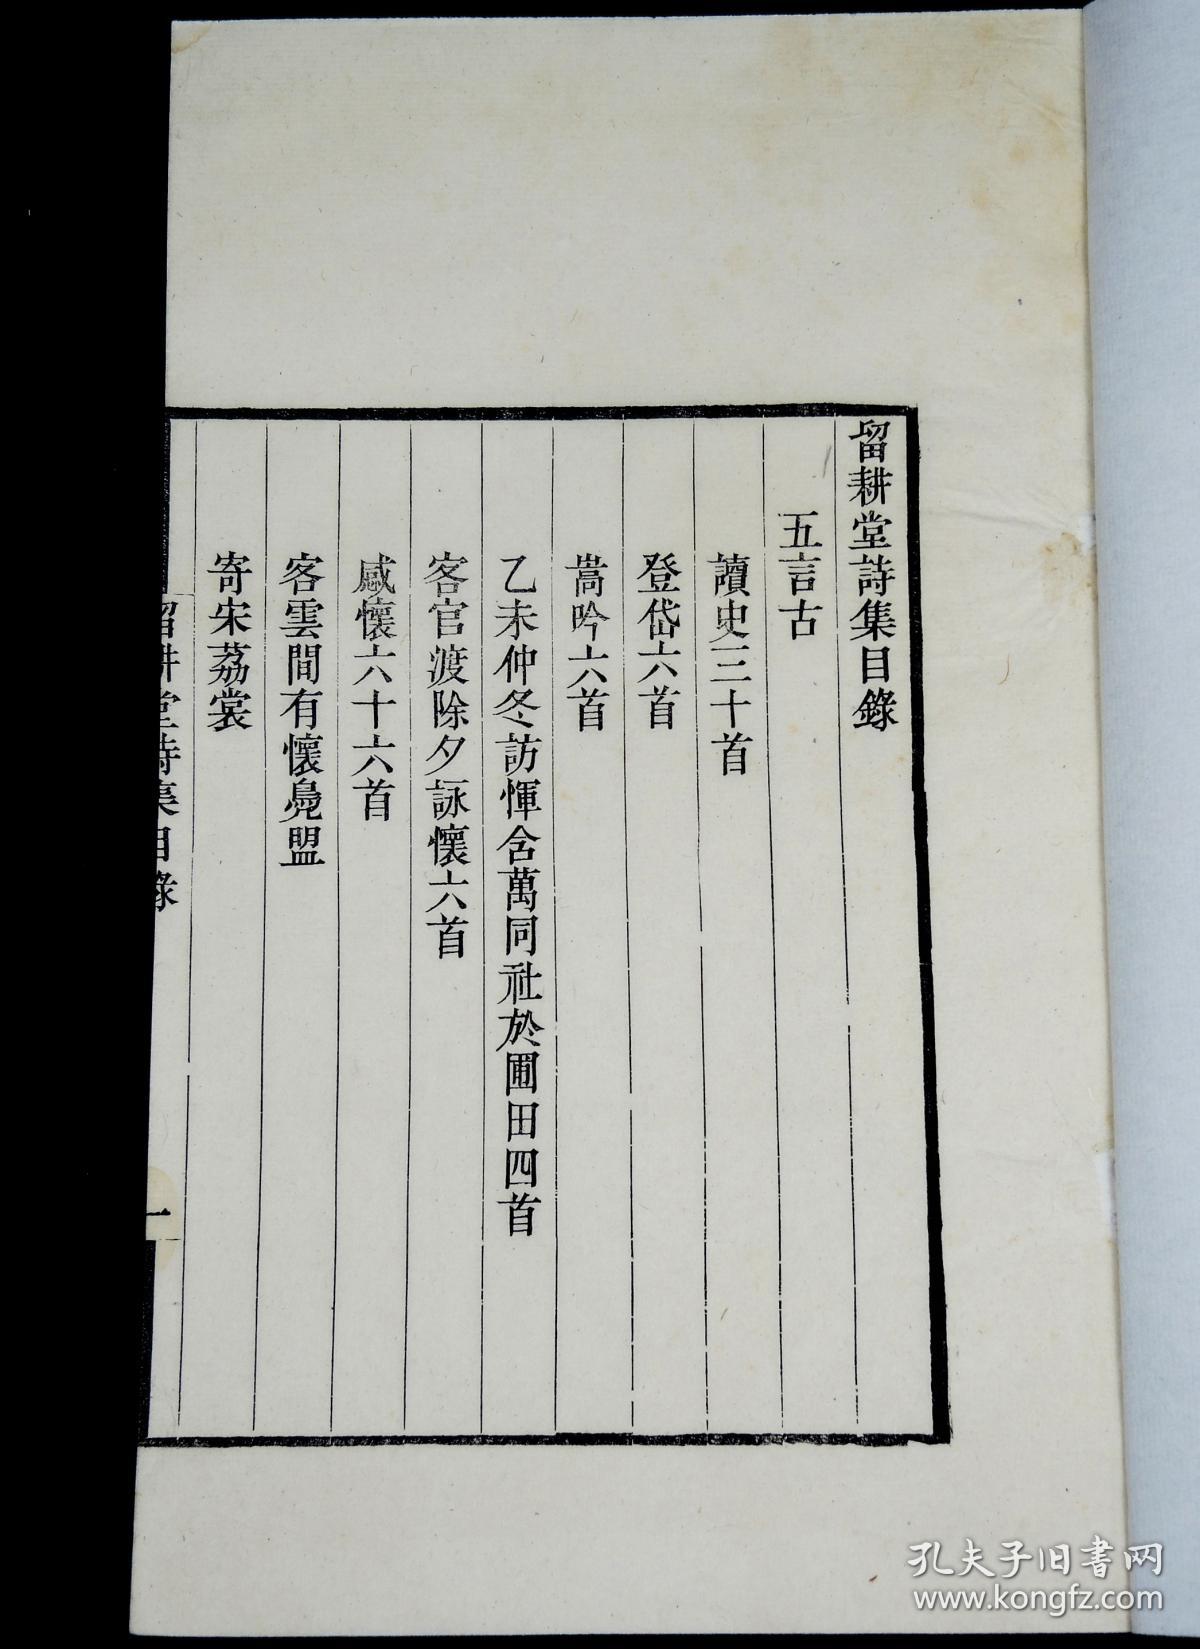 留耕堂詩集目錄
五言古
讀史三十首
登岱六首
嵩吟六首
乙未仲冬訪惲含萬同社於圃田四首
客官渡除夕詠懷六首
感懷六十六首
客雲間有懷鳧盟
寄宋荔裳
留耕堂詩集目錄
一
孔夫子旧书网
www.kongfz.com